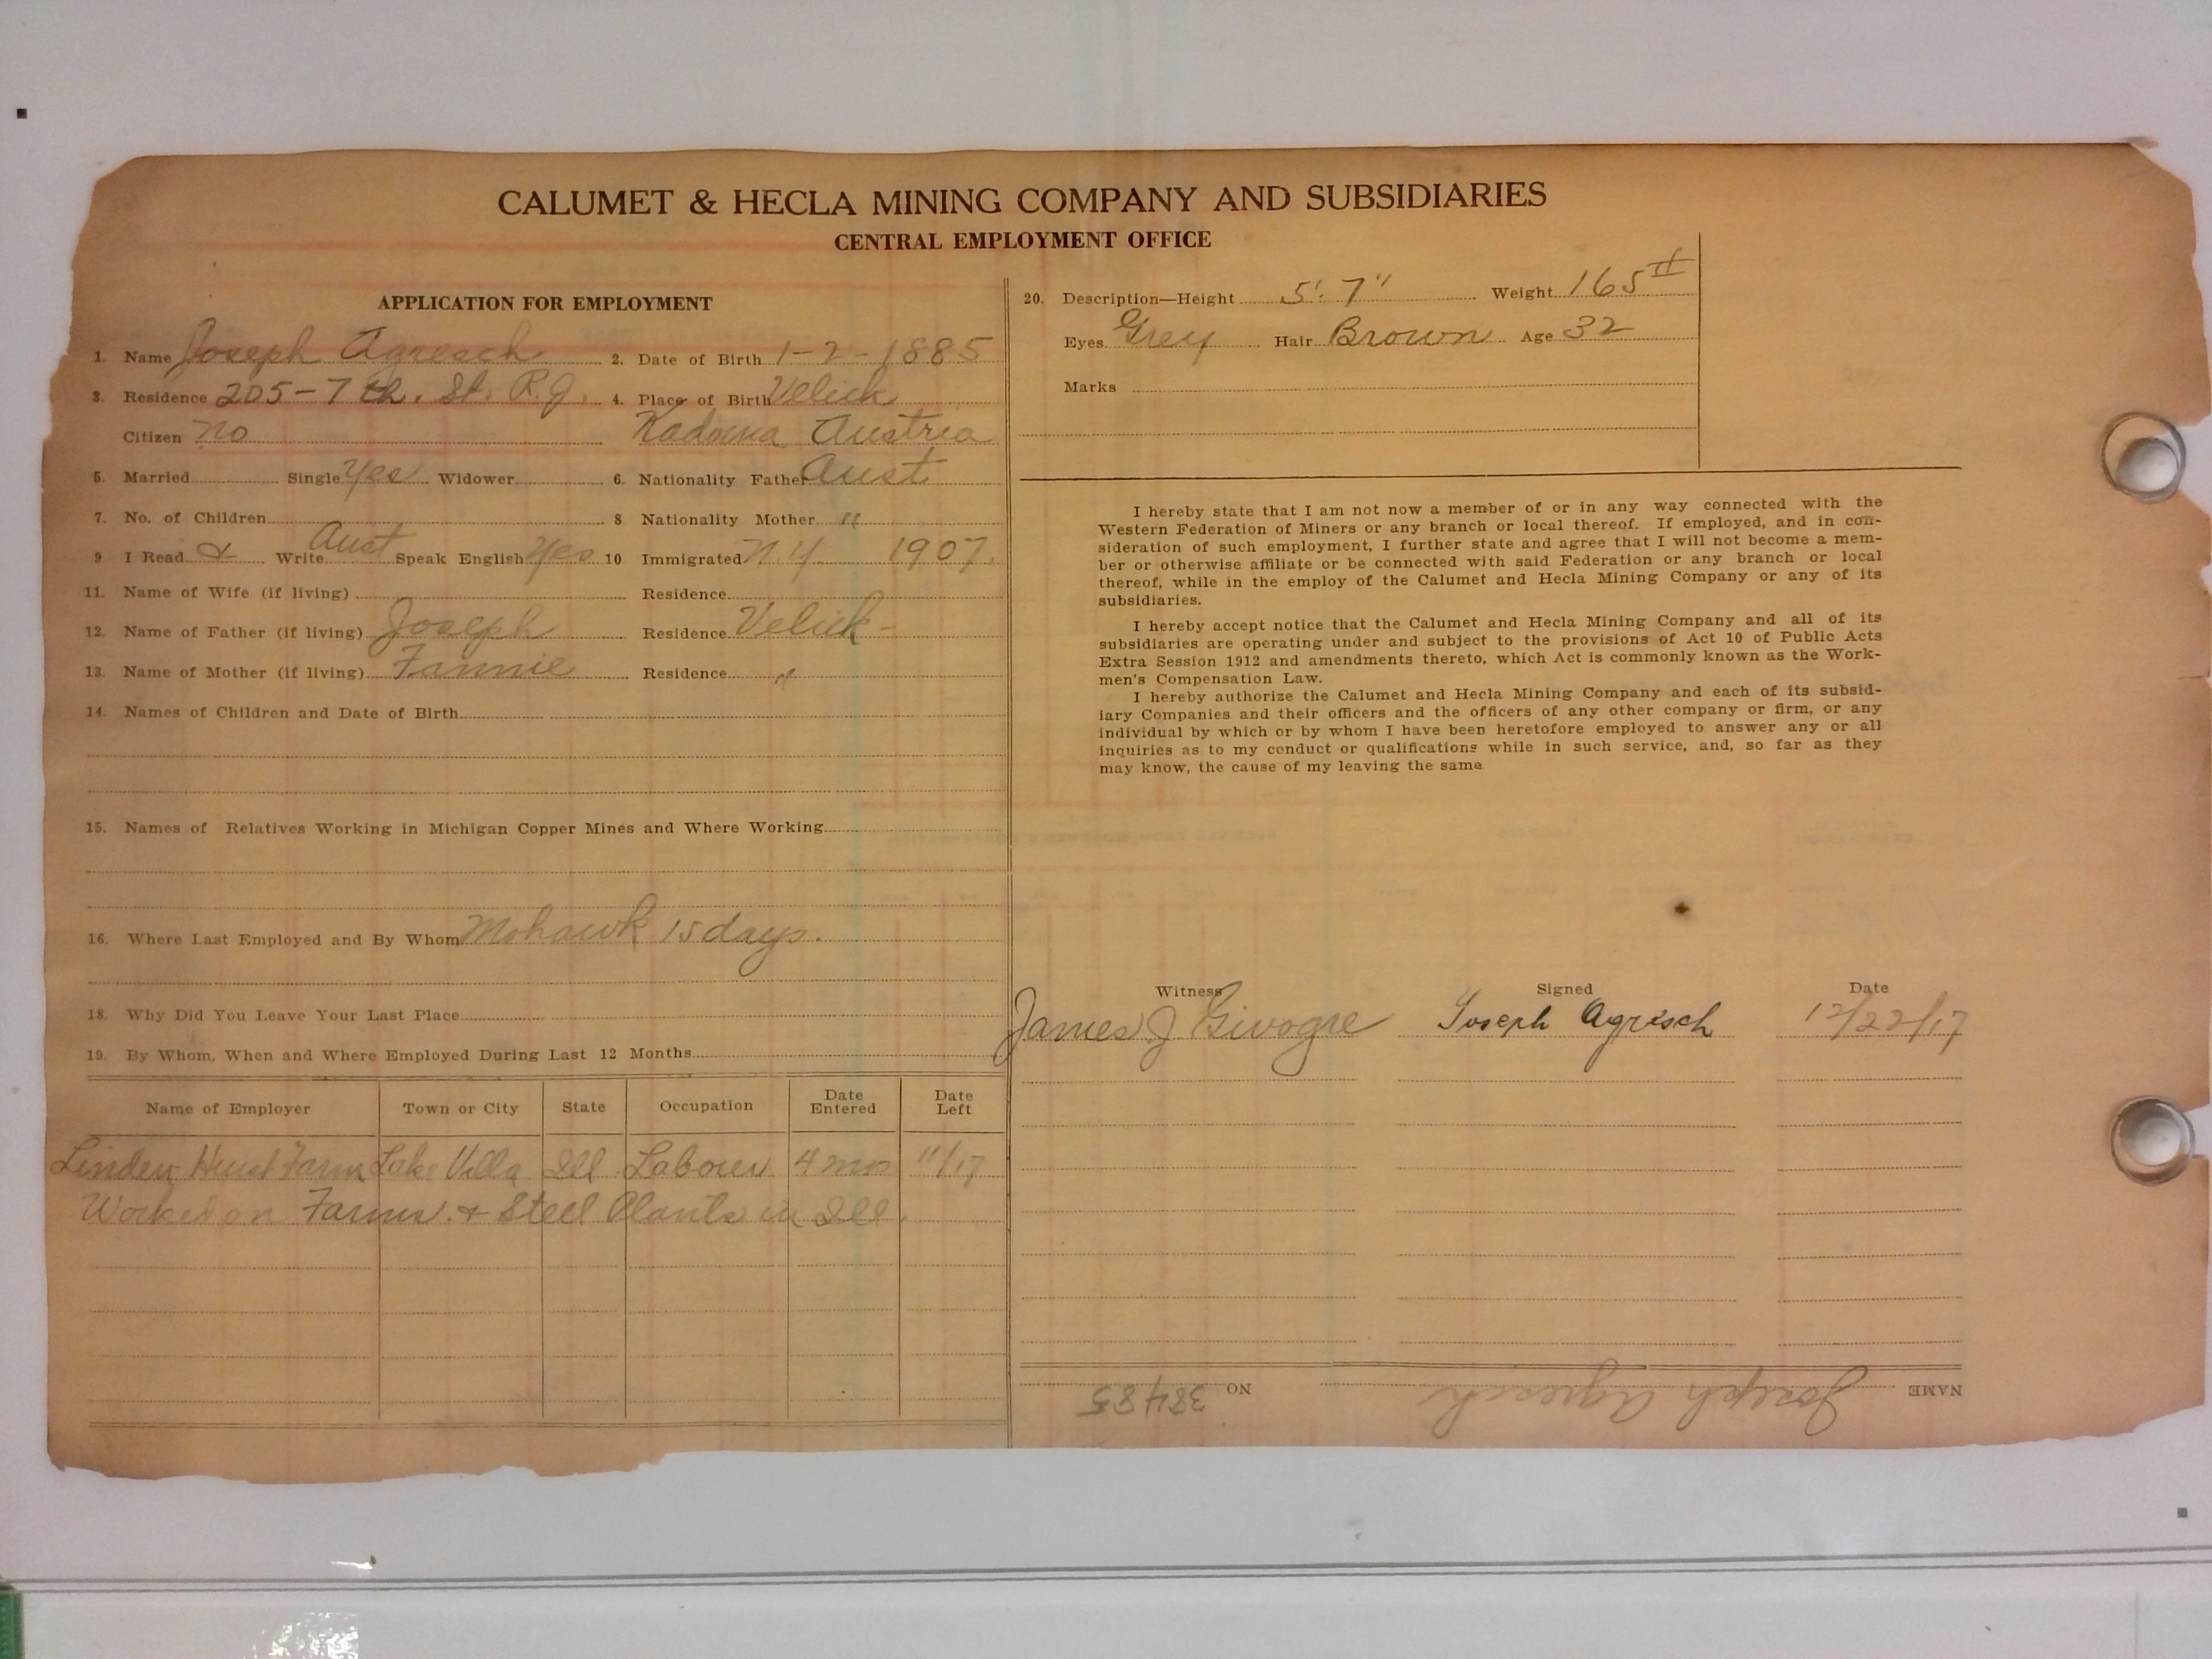 CALUMET & HECLA MINING COMPANY AND SUBSIDIARIES
CENTRAL EMPLOYMENT OFFICE
APPLICATION FOR EMPLOYMENT
1. Name Joseph Agresch 2. Date of Birth 1-2-1885
3. Residence 205-7th. St. R.J. 4. Place of Birth Velick
Citizen no Austria
5. Married Single Yes Widower 6. Nationality Father Aust
7. No. of Children 8 Nationality Mother "
9 I Read & Write Aust Speak English Yes 10 Immigrated N.Y. 1907.
11. Name of Wife (if living) Residence
12. Name of Father (if living) Joseph Residence Velick-
13. Name of Mother (if living) Fannie Residence "
14. Names of Children and Date of Birth
15. Names of Relatives Working in Michigan Copper Mines and Where Working
16. Where Last Employed and By Whom Mohawk 15 days.
18. Why Did You Leave Your Last Place
19. By Whom, When and Where Employed During Last 12 Months
Name of Employer Town or City State Occupation Date Entered Date Left
Linden Hurst Farm Lake Villa Ill Labourer 4 mos 11/17
Worked on Farms. & Steel Plants in Ill.
20. Description—Height 5'. 7" Weight 165#
Eyes Grey Hair Brown Age 32
Marks
I hereby state that I am not now a member of or in any way connected with the
Western Federation of Miners or any branch or local thereof. If employed, and in con-
sideration of such employment, I further state and agree that I will not become a mem-
ber or otherwise affiliate or be connected with said Federation or any branch or local
thereof, while in the employ of the Calumet and Hecla Mining Company or any of its
subsidiaries.
I hereby accept notice that the Calumet and Hecla Mining Company and all of its
subsidiaries are operating under and subject to the provisions of Act 10 of Public Acts
Extra Session 1912 and amendments thereto, which Act is commonly known as the Work-
men's Compensation Law.
I hereby authorize the Calumet and Hecla Mining Company and each of its subsid-
iary Companies and their officers and the officers of any other company or firm, or any
individual by which or by whom I have been heretofore employed to answer any or all
inquiries as to my conduct or qualifications while in such service, and, so far as they
may know, the cause of my leaving the same
Witness Signed Date
James J Joseph Agresch 12/22/17
NAME Joseph Agresch NO 38485